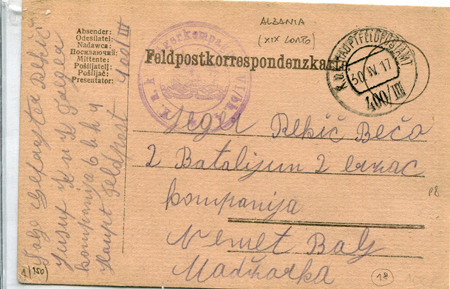 ALBANIA
(XIX CORPO)
Absender:
Odesilatel:
Nadawca
Посилаючий:
Mittente:
Pošiljatelj:
Pošiljač:
Presentator:
Feldpostkorrespondenzkarte
K.u.K. HAUPTFELDPOSTAMT
30 IV. 17
400/III
Jeger Rekić Bećo
2 Batalijun 2 erzac
kompanija
Nemet Balj
Madžarka
Šalje
Jusuf K u K Jeger
kompanija 6 h h 4
Haupt Feldpost 400/III
18